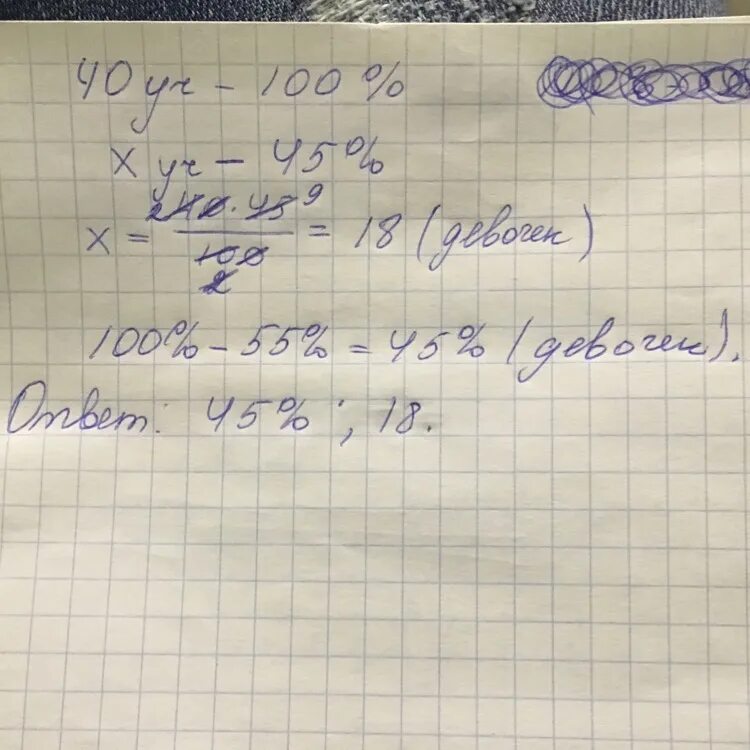 40 уч - 100%
x уч - 45%
x = 40 · 45 / 100 = 18 (девочек)
100% - 55% = 45% (девочек).
Ответ: 45%; 18.